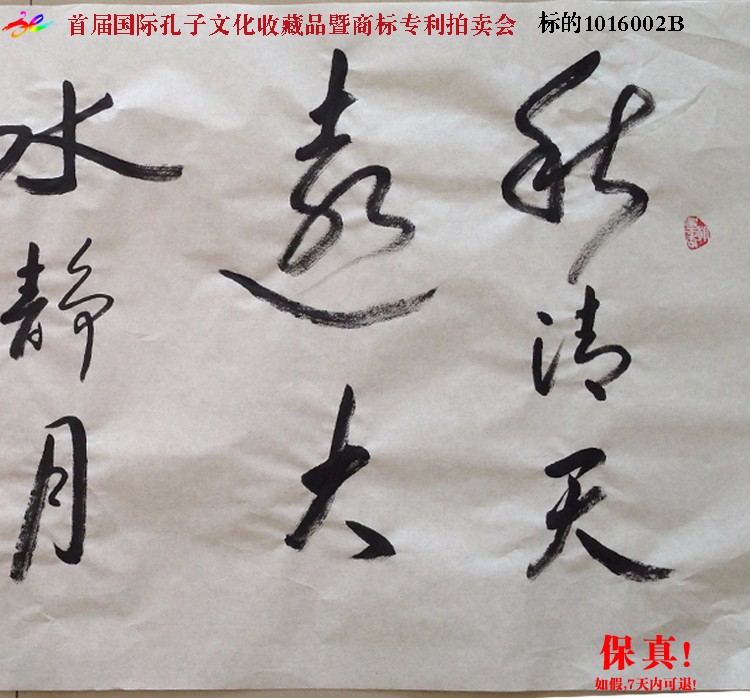 首届国际孔子文化收藏品暨商标专利拍卖会 标的1016002B
秋清天
遠大
水静月
保真!
如假,7天内可退!